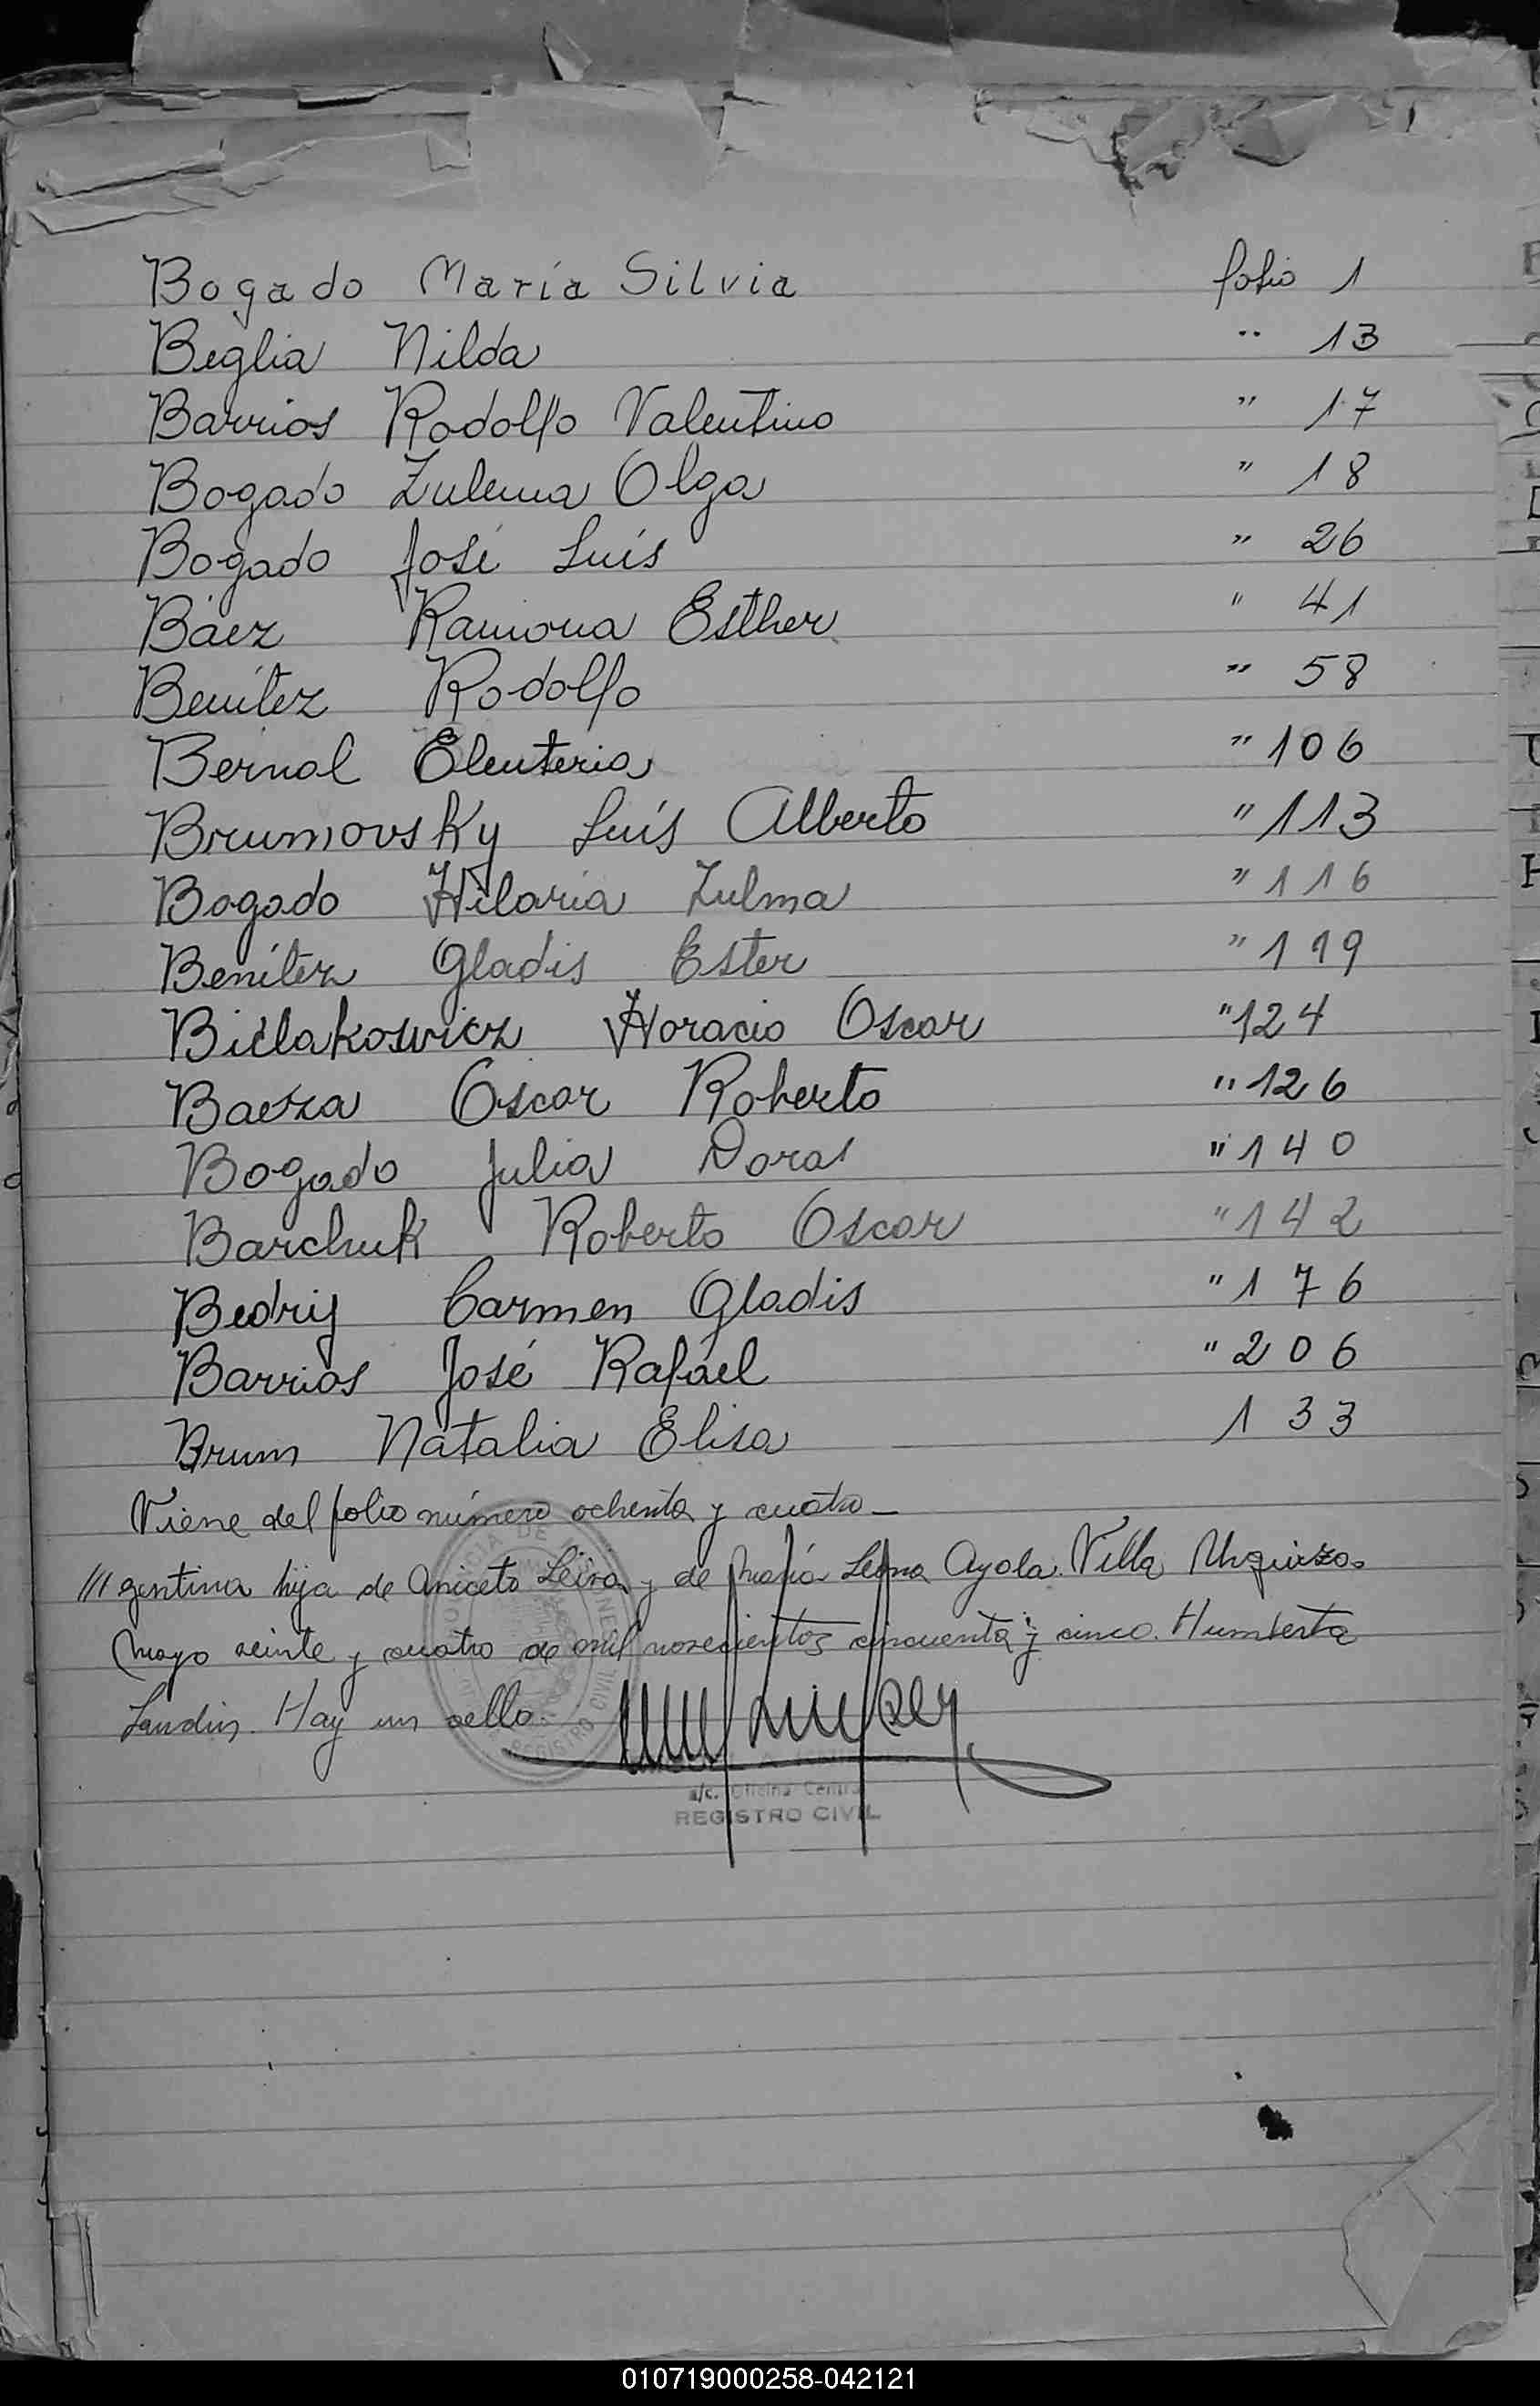 Bogado María Silvia folio 1
Beglia Nilda " 13
Barrios Rodolfo Valentino " 17
Bogado Zulema Olga " 18
Bogado José Luís " 26
Báez Ramona Esther " 41
Benítez Rodolfo " 58
Bernal Eleuteria " 106
Brumovsky Luís Alberto " 113
Bogado Hilaria Zulma " 116
Benítez Gladis Ester " 119
Bielakowicz Horacio Oscar " 124
Baeza Oscar Roberto " 126
Bogado Julia Dora " 140
Barchuk Roberto Oscar " 142
Bedrij Carmen Gladis " 176
Barrios José Rafael " 206
Brum Natalia Elisa 133
Viene del folio número ochenta y cuatro —
/// gentina hija de Aniceto Leiva y de María Ayala. Villa Urquiza.
Mayo veinte y cuatro de mil novecientos cincuenta y cinco. Humberto
Hay un sello.
PROVINCIA DE MISIONES
REGISTRO CIVIL
a/c. Oficina Central
REGISTRO CIVIL
010719000258-042121